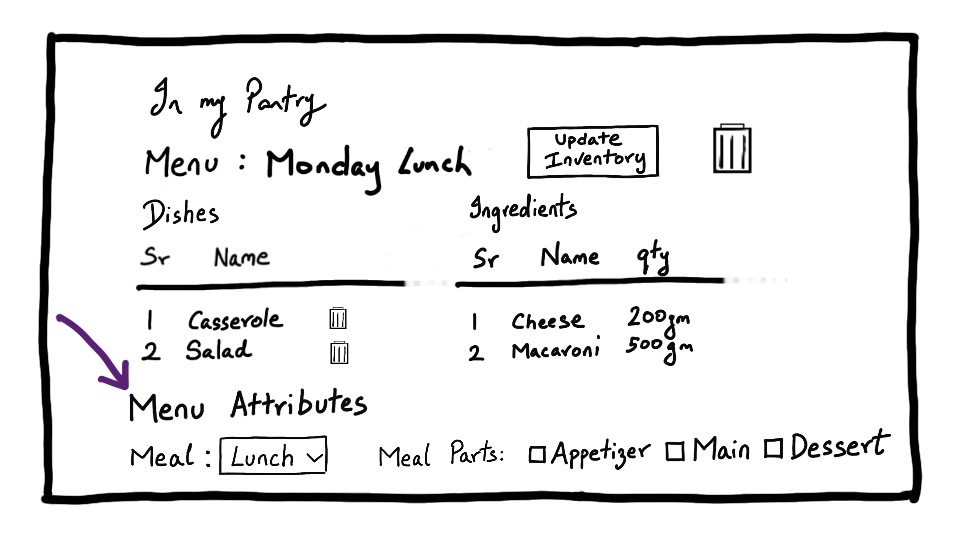 In my Pantry
Menu : Monday Lunch
Update
Inventory
Dishes
Sr Name
1 Casserole
2 Salad
Ingredients
Sr Name qty
1 Cheese 200gm
2 Macaroni 500gm
Menu Attributes
Meal : Lunch Meal Parts: Appetizer Main Dessert